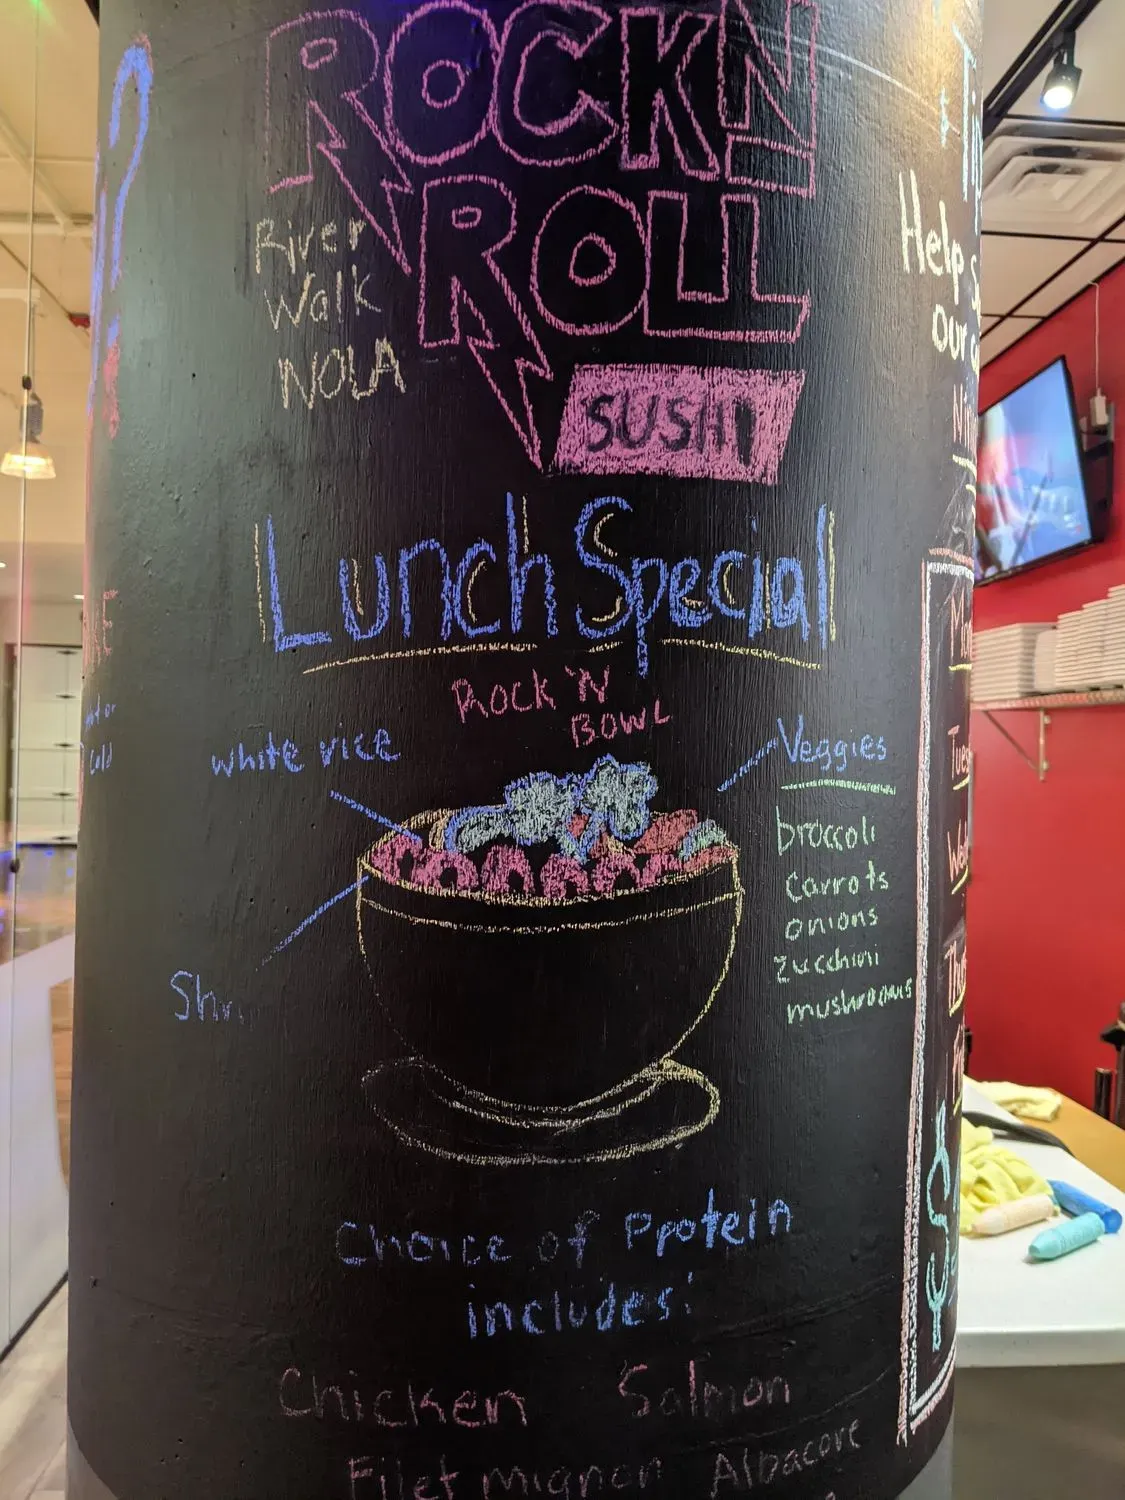 ROCK N
ROLL
SUSHI
River
Walk
NOLA
Lunch Special
ROCK 'N
BOWL
white rice
Veggies
broccoli
carrots
onions
zucchini
mushrooms
Choice of Protein
includes:
Chicken Salmon
Filet Mignon Albacore
Help
our
cold